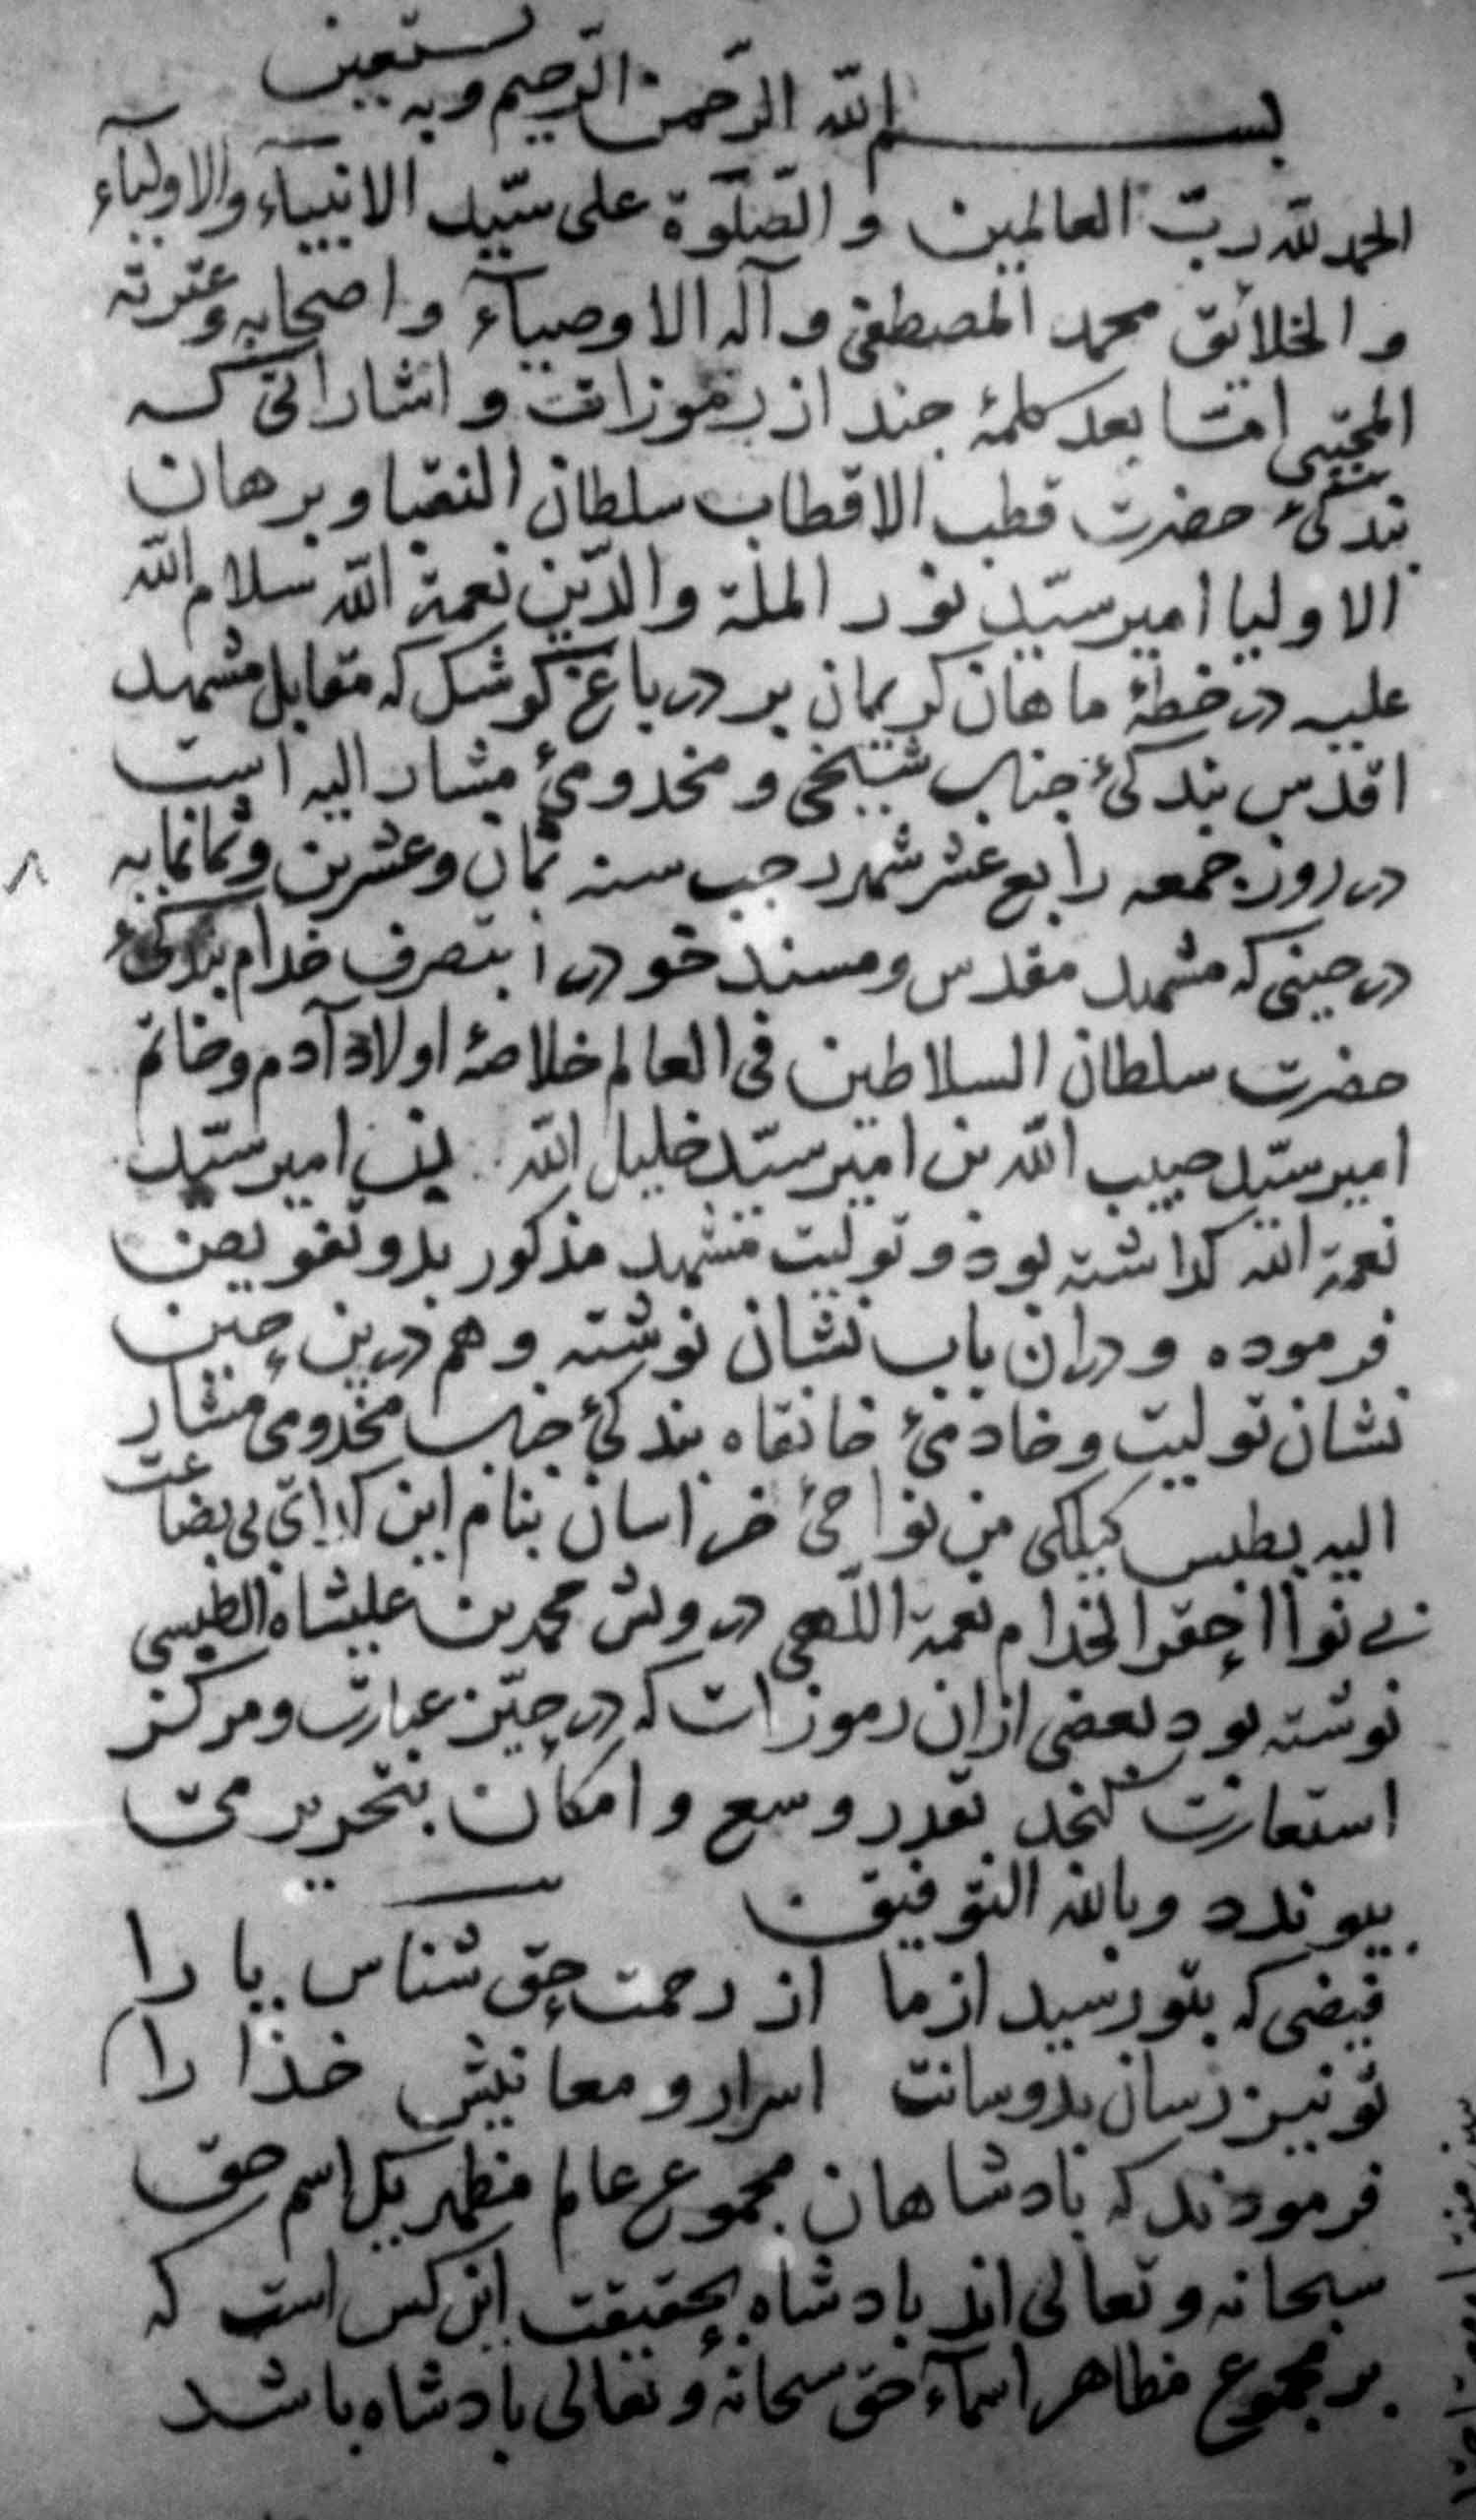 بسم الله الرحمن الرحیم وبه نستعین
الحمد لله ربّ العالمین و الصّلوة علی سیّد الانبیاء والاولیاء
و الخلائق محمد المصطفی و آله الاوصیآء و اصحابه و عترته
المجتبی امّا بعد کلمهٔ جند از رموزات و اشاراتی که
بندکیٔ حضرت قطب الاقطاب سلطان النقبا و برهان
الاولیا امیر سیّد نور الملة والدّین نعمة الله سلام الله
علیه در خطهٔ ماهان کریمان بر در باغ کوشک که مقابل مشهد
اقدس بندکیٔ جناب شیخی و مخدومیٔ مشار الیه است
در روز جمعه رابع عشر شهر رجب سنه ثمان وعشرین وثمانمایه
در حینی که مشهد مقدس و مسند خود را بتصرف خدام بندکیٔ
حضرت سلطان السلاطین فی العالم خلاصهٔ اولاد آدم و خاتم
امیر سیّد حبیب الله بن امیر سیّد خلیل الله بن امیر سیّد
نعمة الله کذاشته بود و تولیت مشهد مذکور بدو تفویض
فرموده و دران باب نشان نوشته و هم درین حین
نشان تولیت و خادمیٔ خانقاه بندکیٔ جناب مخدومی مشار
الیه بطبس کیلکی من نواحیٔ خراسان بنام این کدای بی بضاعت
بی نوا احقر الخدام نعمة اللهی درویش محمد بن علیشاه الطبسی
نوشته بود بعضی ازان رموزات که در حیّز عبارت و مرکز
استعارت کنجد بقدر وسع و امکان بتحریر می
بیوندد و بالله التوفیق
فیضی که بتو رسید از ما از رحمت حق شناس یا را
تو نیز رسان بدوستانت اسرار و معانیش خذا را
فرمودند که بادشاهان مجموع عالم مظهر یک اسم حق
سبحانه و تعالی اند بادشاه بحقیقت این کس است که
بر مجموع مظاهر اسمآء حق سبحانه و تعالی بادشاه باشد